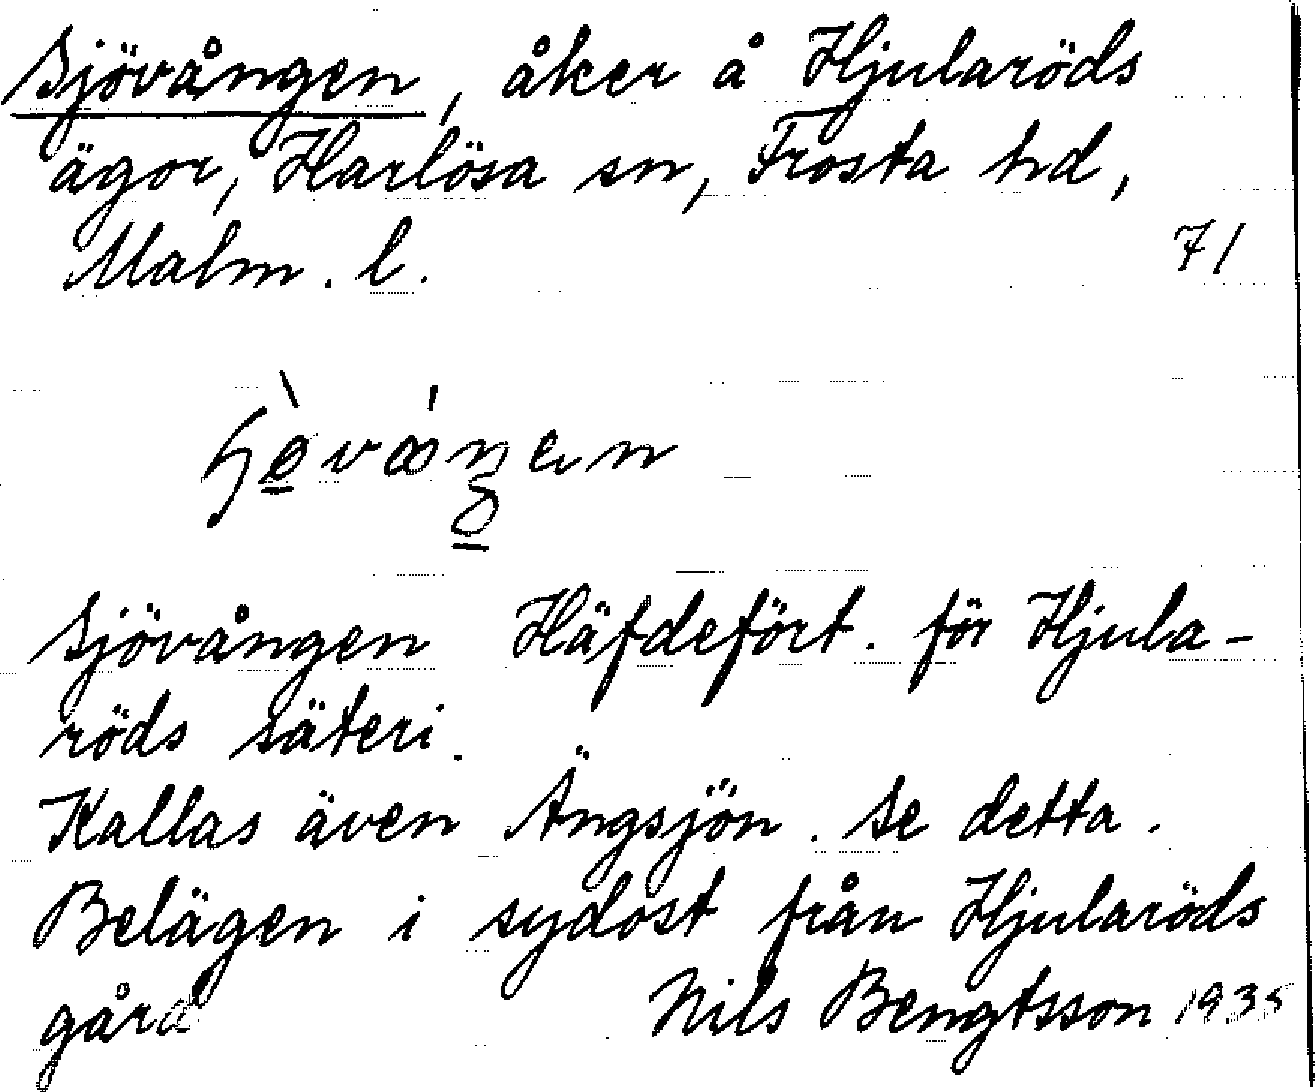 Sjövången, åker å Hjularöds
ägor, Harlösa sn, Frosta hd,
Malm. l. 71
Sjövången Häfdefört. för Hjula-
röds säteri.
Kallas även Ängsjön. Se detta.
Belägen i sydost från Hjularöds
gård Nils Bengtsson 1935